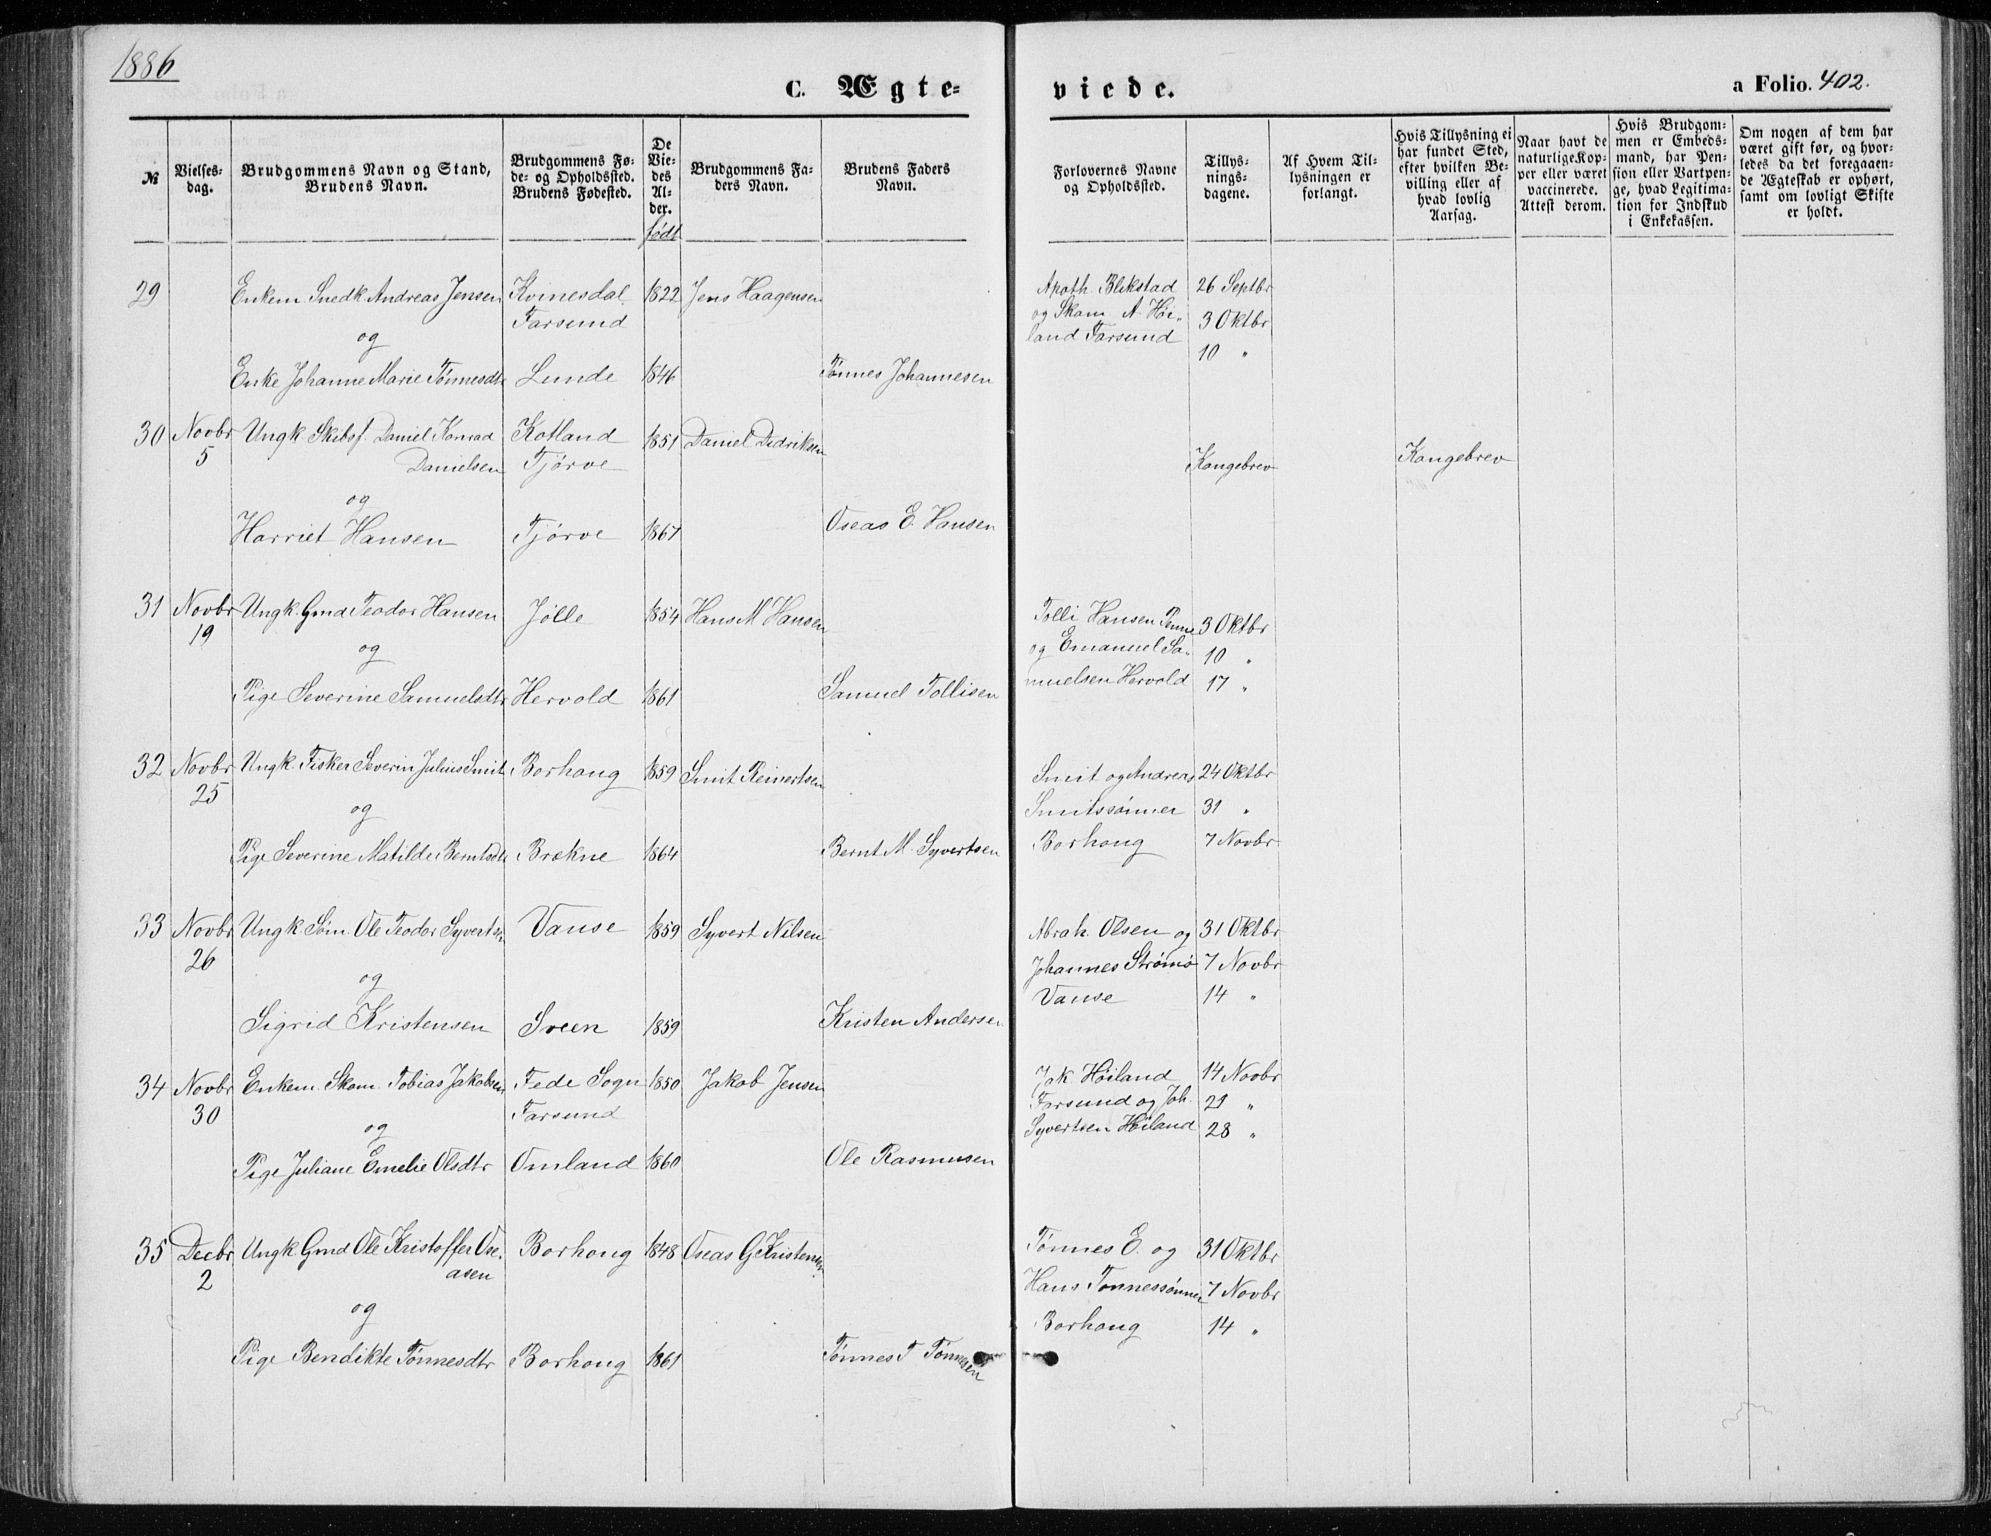 1886
C. Ægte- viede. a Folio. 402.
№
Vielses-
dag.
Brudgommens Navn og Stand,
Brudens Navn.
Brudgommens Fø-
de- og Opholdssted.
Brudens Fødested.
De
Vie-
des
Al-
der.
født
Brudgommens Fa-
ders Navn.
Brudens Faders
Navn.
Forlovernes Navne
og Opholdssted.
Tillys-
nings-
dagene.
Af Hvem Til-
lysningen er
forlangt.
Hvis Tillysning ei
har fundet Sted,
efter hvilken Be-
villing eller af
hvad lovlig
Aarsag.
Naar havt de
naturlige Kop-
per eller været
vaccinerede.
Attest derom.
Hvis Brudgom-
men er Embeds-
mand, har Pen-
sion eller Vartpen-
ge, hvad Legitima-
tion for Indskud
i Enkekassen.
Om nogen af dem har
været gift før, og hvor-
ledes da det foregaaen-
de Ægteskab er ophørt,
samt om lovligt Skifte
er holdt.
29 Enkem. Snedk. Andreas Jensen Kvinesdal 1822 Jens Haagensen Apoth. Blikstad 26 Septbr
Farsund og Skom. A. Høi- 3 Oktbr
og land Farsund 10 "
Enke Johanne Marie Tønnesdtr Lunde 1846 Tønnes Johannesen
30 Novbr Ungk. Skibsf. Daniel Konrad Kotland 1851 Daniel Didriksen
5 Danielsen Tjørve Kongebrev Kongebrev
og
Harriet Hansen Tjørve 1867 Oseas E. Hansen
31 Novbr Ungk. Gmd Teodor Hansen Jølle 1854 Hans M Hansen Tolli Hansen Penne 3 Oktbr
19 og og Emanuel Sa- 10 "
Pige Severine Samuelsdtr Hervold 1861 Samuel Tollisen muelsen Hervold 17 "
32 Novbr Ungk. Fisker Severin Julius Smit Borhaug 1859 Smit Reinertsen Smit og Andreas 24 Oktbr
25 og Smitssønner 31 "
Pige Severine Matilde Berntsdtr Brekne 1864 Bernt M. Syvertsen Borhaug 7 Novbr
33 Novbr Ungk. Søm. Ole Teodor Syvertsen Vanse 1859 Syvert Nilsen Abrah. Olsen og 31 Oktbr
26 og Johannes Strømø 7 Novbr
Vanse 14 "
Sigrid Kristensen Sveen 1859 Kristen Andersen
34 Novbr Enkem. Skom. Tobias Jakobsen Fede Sogn 1850 Jakob Jensen Jak Høiland 14 Novbr
30 Farsund Farsund og Joh. 21 "
og Syvertsen Høiland 28 "
Pige Juliane Emelie Olsdtr Omland 1860 Ole Rasmusen
35 Decbr Ungk Gmd Ole Kristoffer Ose- Borhaug 1848 Oseas G Kristensen Tønnes E. og 31 Oktbr
2 asen Hans Tønnessønner 7 Novbr
og Borhaug 14 "
Pige Bendikte Tønnesdtr Borhaug 1861 Tønnes T Tønnesen